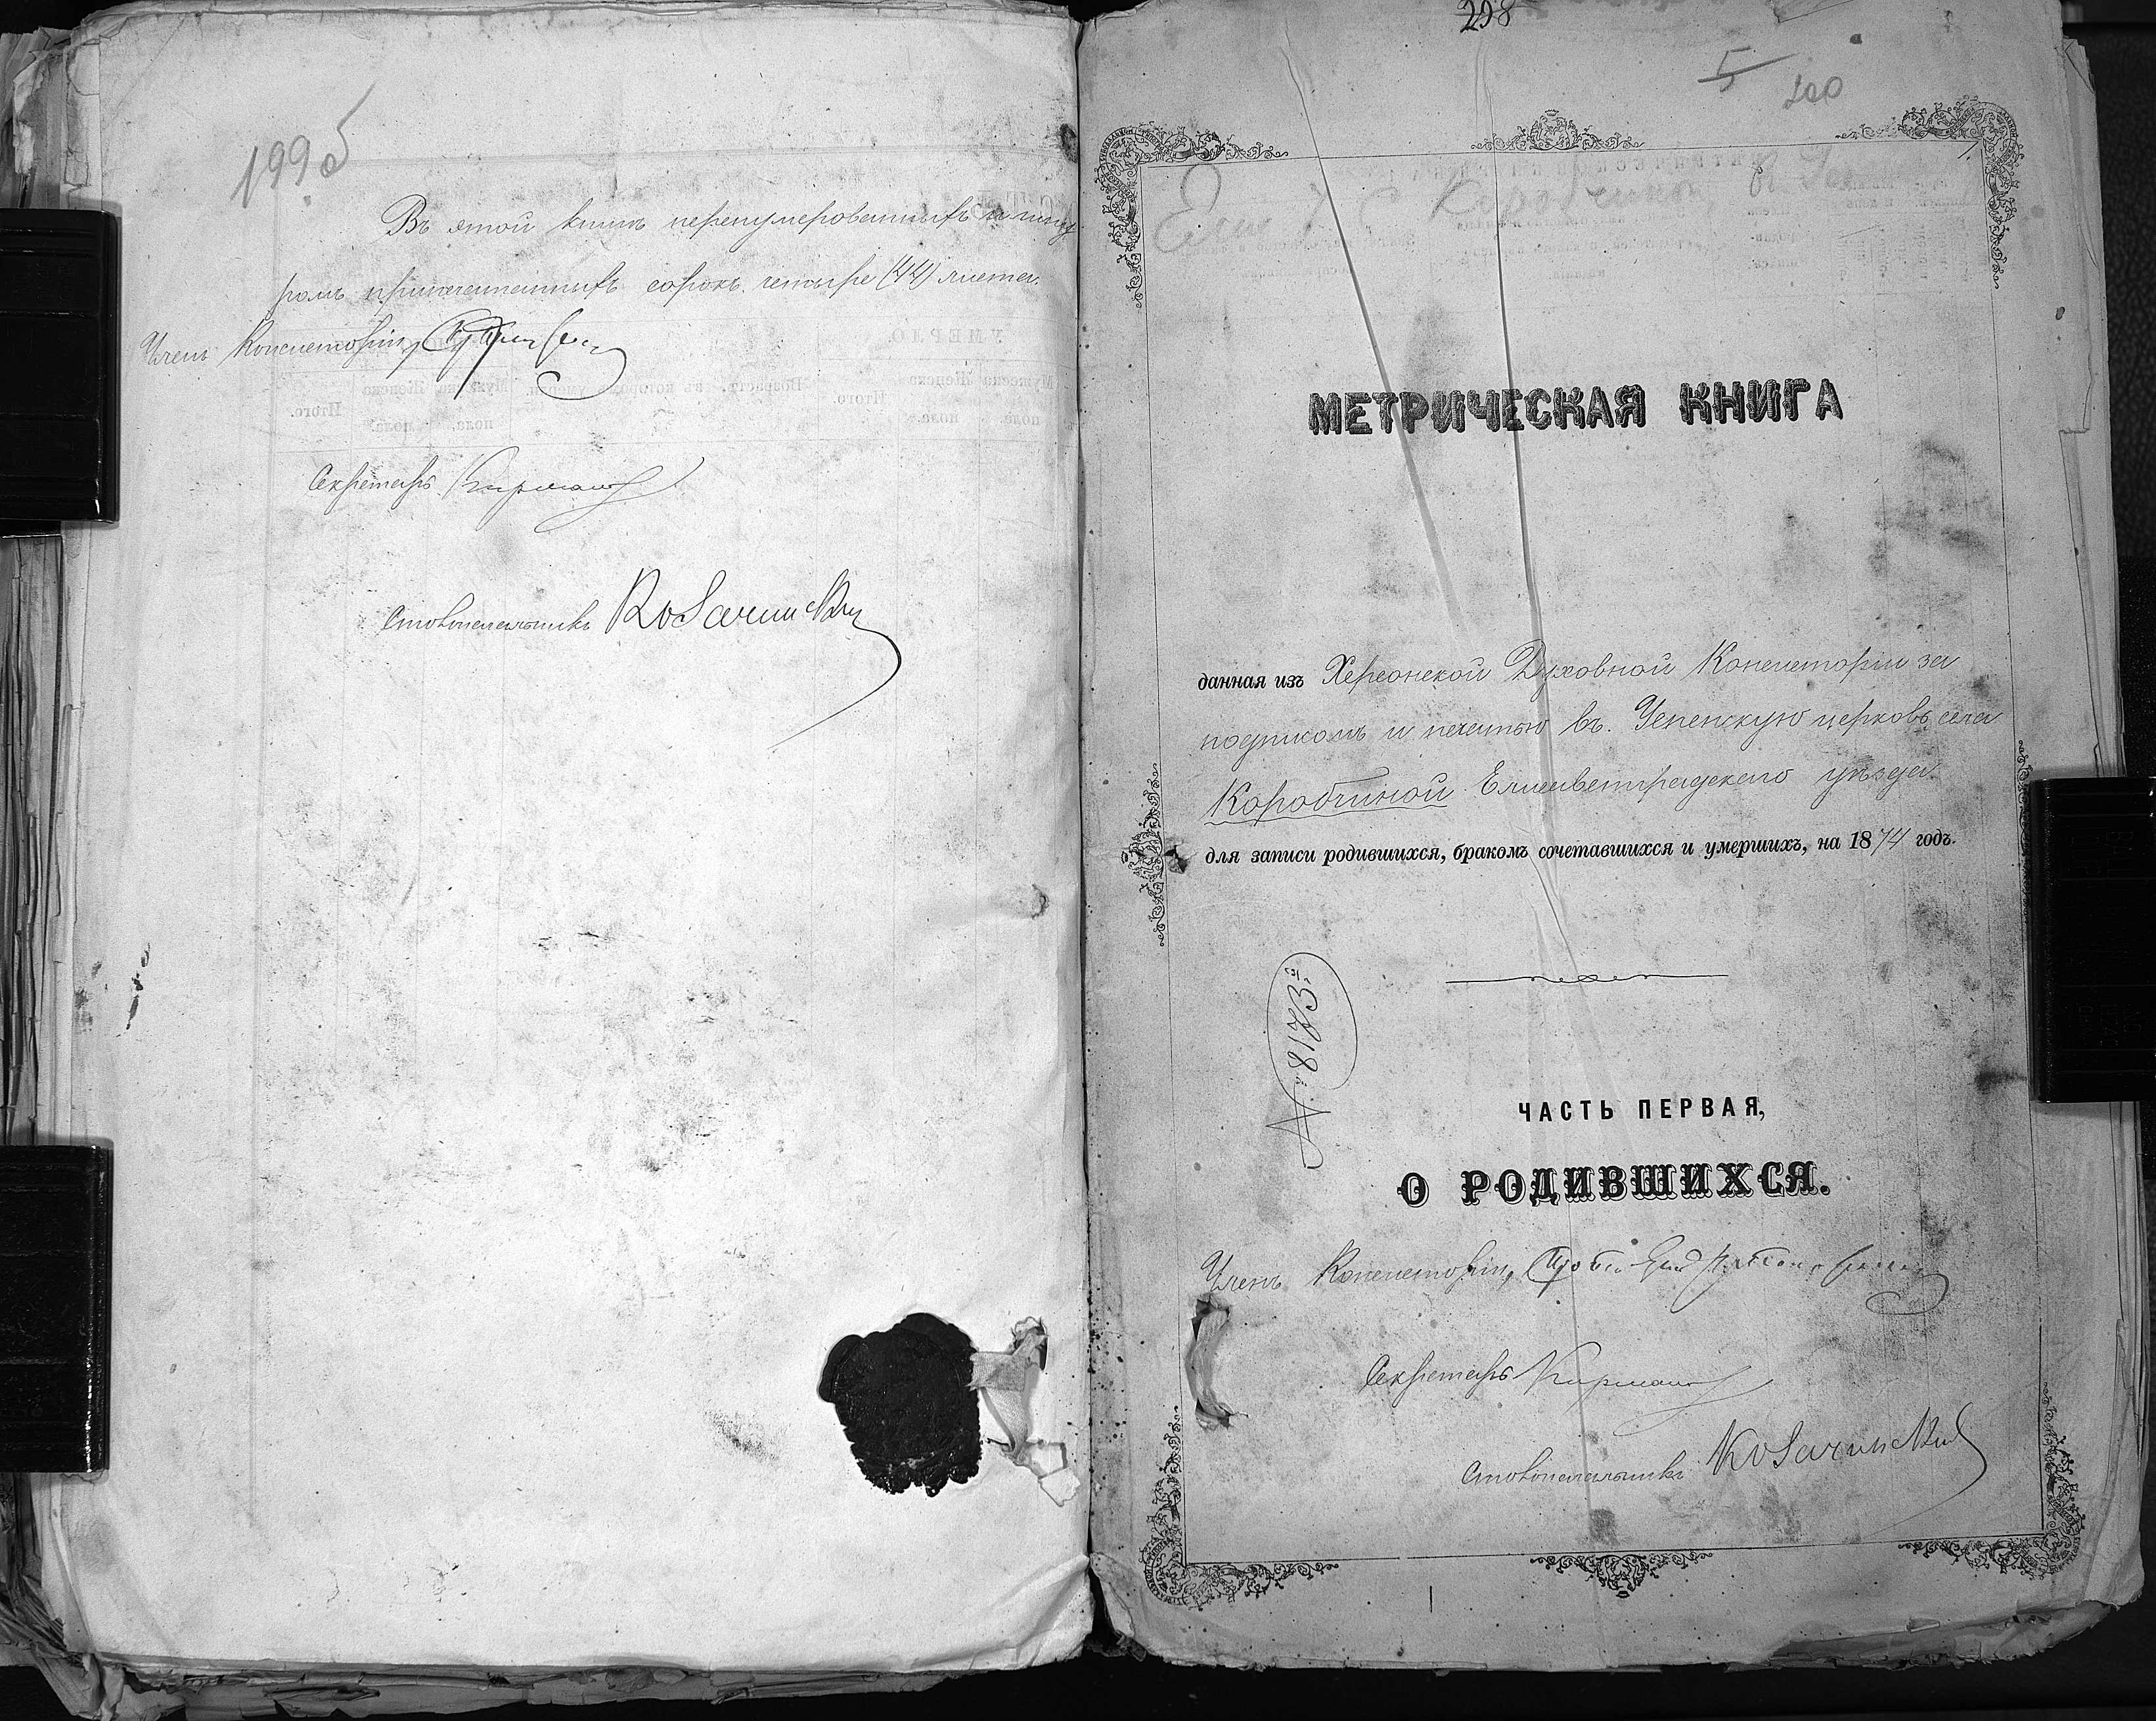 199об
Въ этой книгѣ перенумерованныхъ и шну
ромъ припечатанныхъ сорокъ четыре (44) листа.
Членъ Консисторіи,
Секретарь
Столоначальникъ
298
5
200
МЕТРИЧЕСКАЯ КНИГА
данная изъ Херсонской Духовной Консисторіи за
подписомъ и печатью въ Успенскую церковь села
Коробчиной Елисаветградскаго уѣзда
для записи родившихся, бракомъ сочетавшихся и умершихъ, на 1874 годъ.
№ 8173.
ЧАСТЬ ПЕРВАЯ,
О РОДИВШИХСЯ.
Членъ Консисторіи,
Секретарь
Столоначальникъ